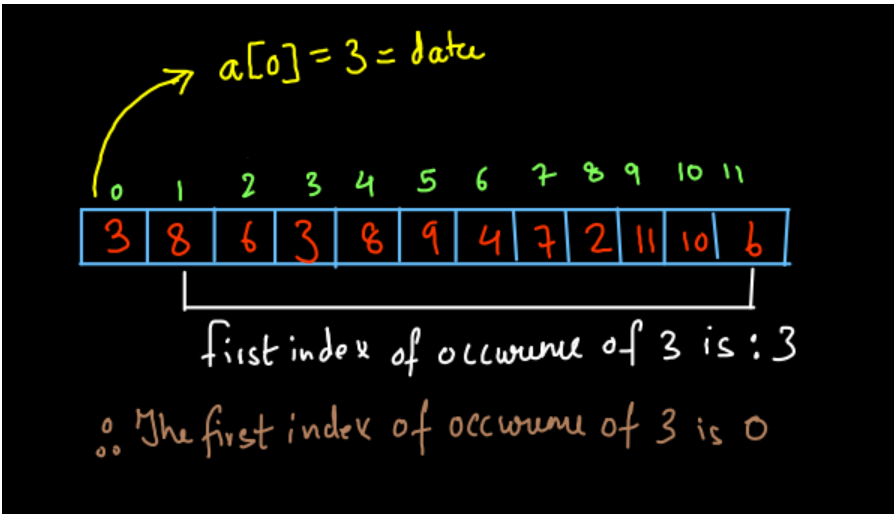 a[0] = 3 = data
0 1 2 3 4 5 6 7 8 9 10 11
3 8 6 3 8 9 4 7 2 11 10 6
first index of occurence of 3 is : 3
∴ The first index of occurence of 3 is 0